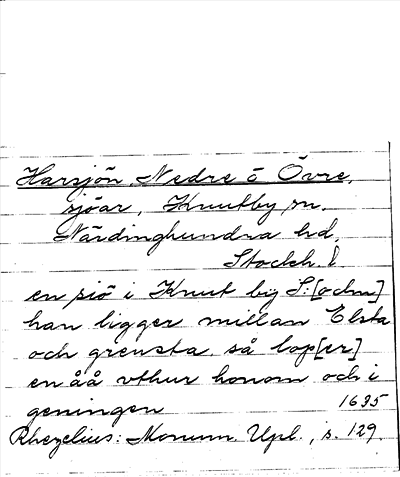 Harsjön, Nedre o Övre,
sjöar, Knutby sn.
Närdinghundra hd,
Stockh. l
en siö i Knut by S:[ockn]
han ligger millan Elsta
och grensta, så löp[er]
en åå vthur honom och i
geningen 1635
Rhezelius: Monum. Upl., s. 129.